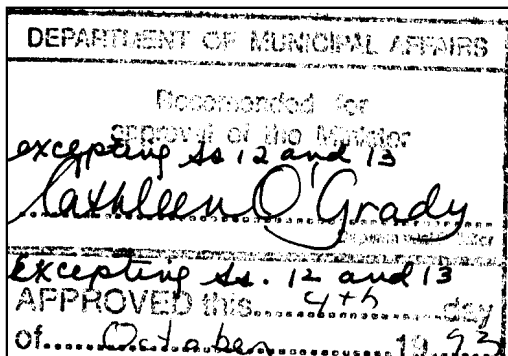 DEPARTMENT OF MUNICIPAL AFFAIRS
Recommended for
approval of the Minister
excepting ss 12 and 13
Kathleen O'Grady
excepting ss. 12 and 13
APPROVED this 4th day
of October 19 93